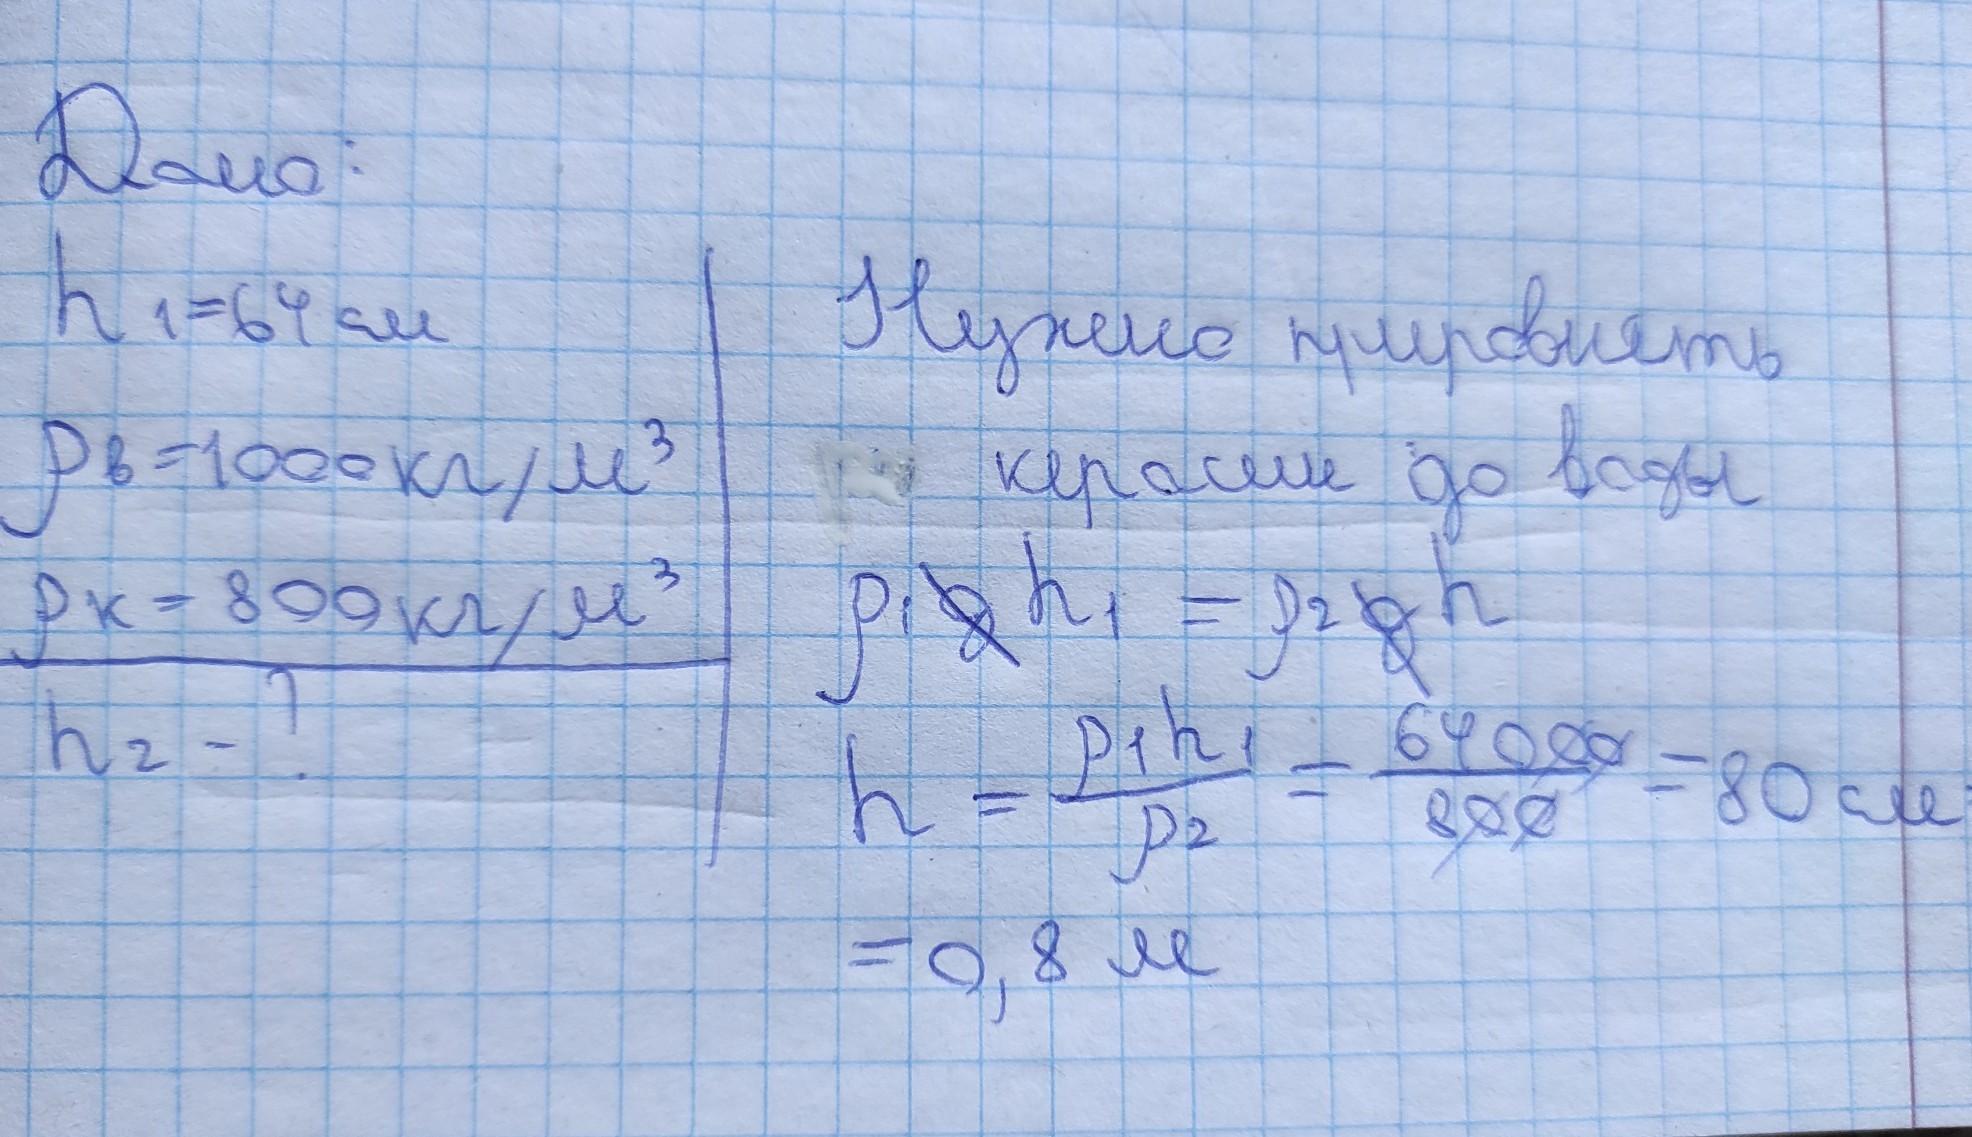 Дано:
h1=64 см
ρв=1000кг/м³
ρк=800кг/м³
h2-?
Нужно прировнять
керосин до воды
ρ1gh1=ρ2gh
h=ρ1h1/ρ2=64000/800=80 см
=0,8 м